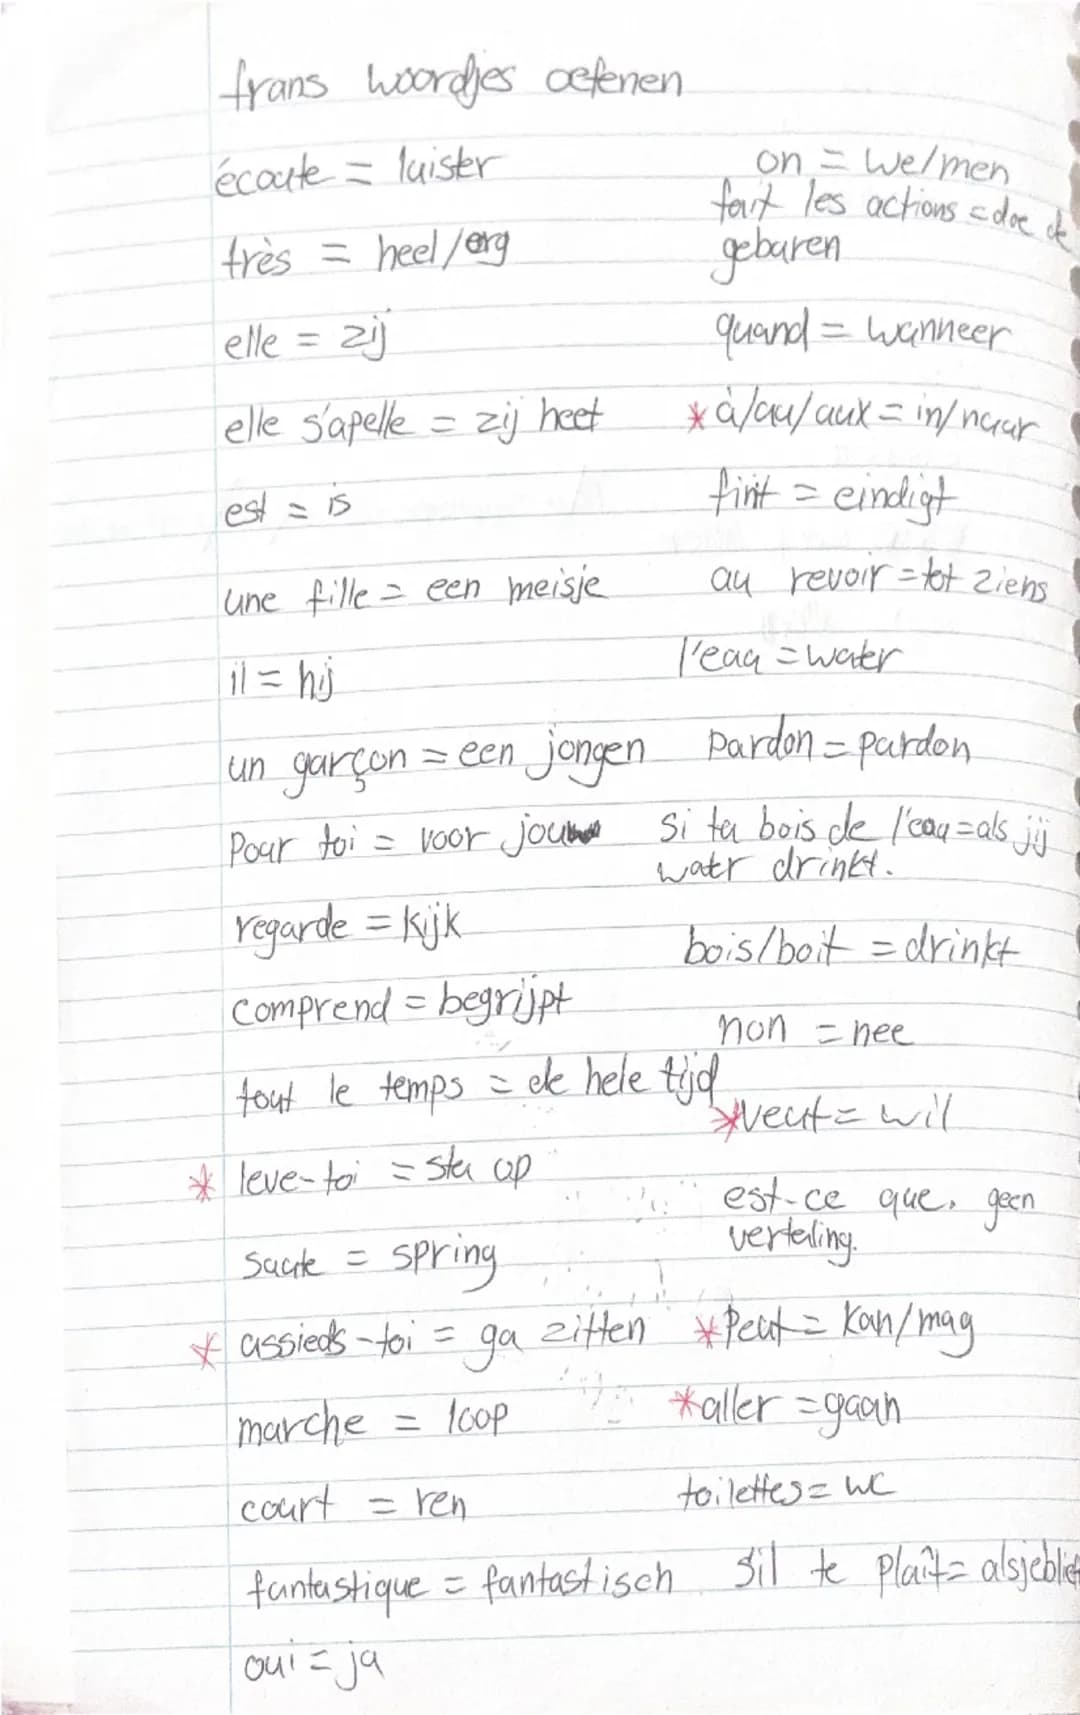 frans woordjes oefenen
écoute = luister
très = heel/erg
elle = zij
elle s'apelle = zij heet
est = is
une fille = een meisje
il = hij
un garçon = een jongen
Pour toi = voor jou
regarde = kijk
comprend = begrijpt
tout le temps = de hele tijd
* leve-toi = sta op
saute = spring
* assieds-toi = ga zitten
marche = loop
court = ren
fantastique = fantastisch
oui = ja
on = we/men
fait les actions = doe de
gebaren
quand = wanneer
* à/au/aux = in/naar
finit = eindigt
au revoir = tot ziens
l'eau = water
pardon = pardon
si tu bois de l'eau = als jij
watr drinkt.
bois/boit = drinkt
non = nee
* veut = wil
est-ce que, geen
vertaling.
* Peut = kan/mag
* aller = gaan
toilettes = WC
s'il te plaît = alsjeblief